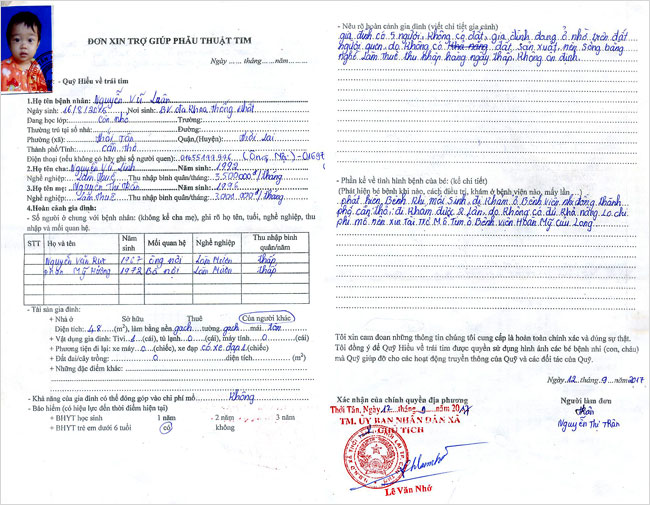 ĐƠN XIN TRỢ GIÚP PHẪU THUẬT TIM
Ngày ...... tháng ...... năm.........
- Quỹ Hiểu về trái tim
1.Họ tên bệnh nhân: Nguyễn Vũ Luân
Ngày sinh: 16/8/2016 Nơi sinh: BV. đa Khoa Thống Nhất
Đang học lớp: Còn nhỏ Trường:
Thường trú tại số nhà: Đường:
Phường (xã): Thới Tân Quận,(Huyện): Thới Lai
Thành phố/Tỉnh: Cần Thơ
Điện thoại (nếu không có hãy ghi số người quen):
2.Họ tên cha: Nguyễn Vũ Linh Năm sinh: 1992
Nghề nghiệp: Làm Thuê Thu nhập bình quân/tháng: 3.500.000đ/tháng
3.Họ tên mẹ: Nguyễn Thị Thân Năm sinh: 1996
Nghề nghiệp: Làm Thuê Thu nhập bình quân/tháng: 3.000.000đ/tháng
4.Hoàn cảnh gia đình:
- Số người ở chung với bệnh nhân: (không kể cha mẹ), ghi rõ họ tên, tuổi, nghề nghiệp, thu
nhập và mối quan hệ.
STT Họ và tên Năm sinh Mối quan hệ Nghề nghiệp Thu nhập bình quân/năm
Nguyễn Văn 1967 ông nội Làm Mướn thấp
Mỹ Hường 1972 Bà nội Làm Mướn thấp
- Tài sản gia đình:
+ Nhà ở Sở hữu Thuê Của người khác
Diện tích: 48 (m²), làm bằng nền gạch tường gạch mái tôn
+ Vật dụng gia đình: Tivi 1 (cái), tủ lạnh 0 (cái), máy tính 0 (cái)
+ Phương tiện đi lại: xe máy 0 (chiếc), xe đạp có xe đạp 1 (chiếc)
+ Đất đai/cây trồng: 0 diện tích (m²)
+ Những đặc điểm khác:
- Khả năng của gia đình có thể đóng góp vào chi phí mổ Không
- Bảo hiểm (có hiệu lực đến thời điểm hiện tại)
+ BHYT học sinh 1 năm - 2 năm - 3 năm
+ BHYT trẻ em dưới 6 tuổi có không
- Nêu rõ hoàn cảnh gia đình (viết chi tiết gia cảnh)
gia đình có 5 người, Không có đất, gia đình đang ở nhờ trên đất
người quen, do Không có đất, sản xuất, nên sống bằng
nghề Làm thuê thu nhập hàng ngày thấp. Không ổn định.
- Phần kể về tình hình bệnh của bé: (kể chi tiết)
(Phát hiện bệnh khi nào, cách điều trị, khám ở bệnh viện nào, mấy lần
phát hiện, Bệnh Khi mới Sinh, đi Khám ở Bệnh viện nhi đồng thành
phố cần thơ, đi Khám được 2 lần, do Không có đủ Khả năng Lo chi
phí mổ nên xin Tài Trợ Mổ Tim ở Bệnh viện Hoàn Mỹ Cửu Long
Tôi xin cam đoan những thông tin chúng tôi cung cấp là hoàn toàn chính xác và đúng sự thật.
Tôi đồng ý để Quỹ Hiểu về trái tim được quyền sử dụng hình ảnh các bé bệnh nhi (con, cháu)
mà Quỹ giúp đỡ cho các hoạt động truyền thông của Quỹ và các đối tác của Quỹ.
Ngày 12 tháng 9 năm 2017
Xác nhận của chính quyền địa phương Người làm đơn
Thới Tân, Ngày 12 tháng 9 năm 2017 Thân
TM. ỦY BAN NHÂN DÂN XÃ Nguyễn Thị Thân
CHỦ TỊCH
Lê Văn Nhớ